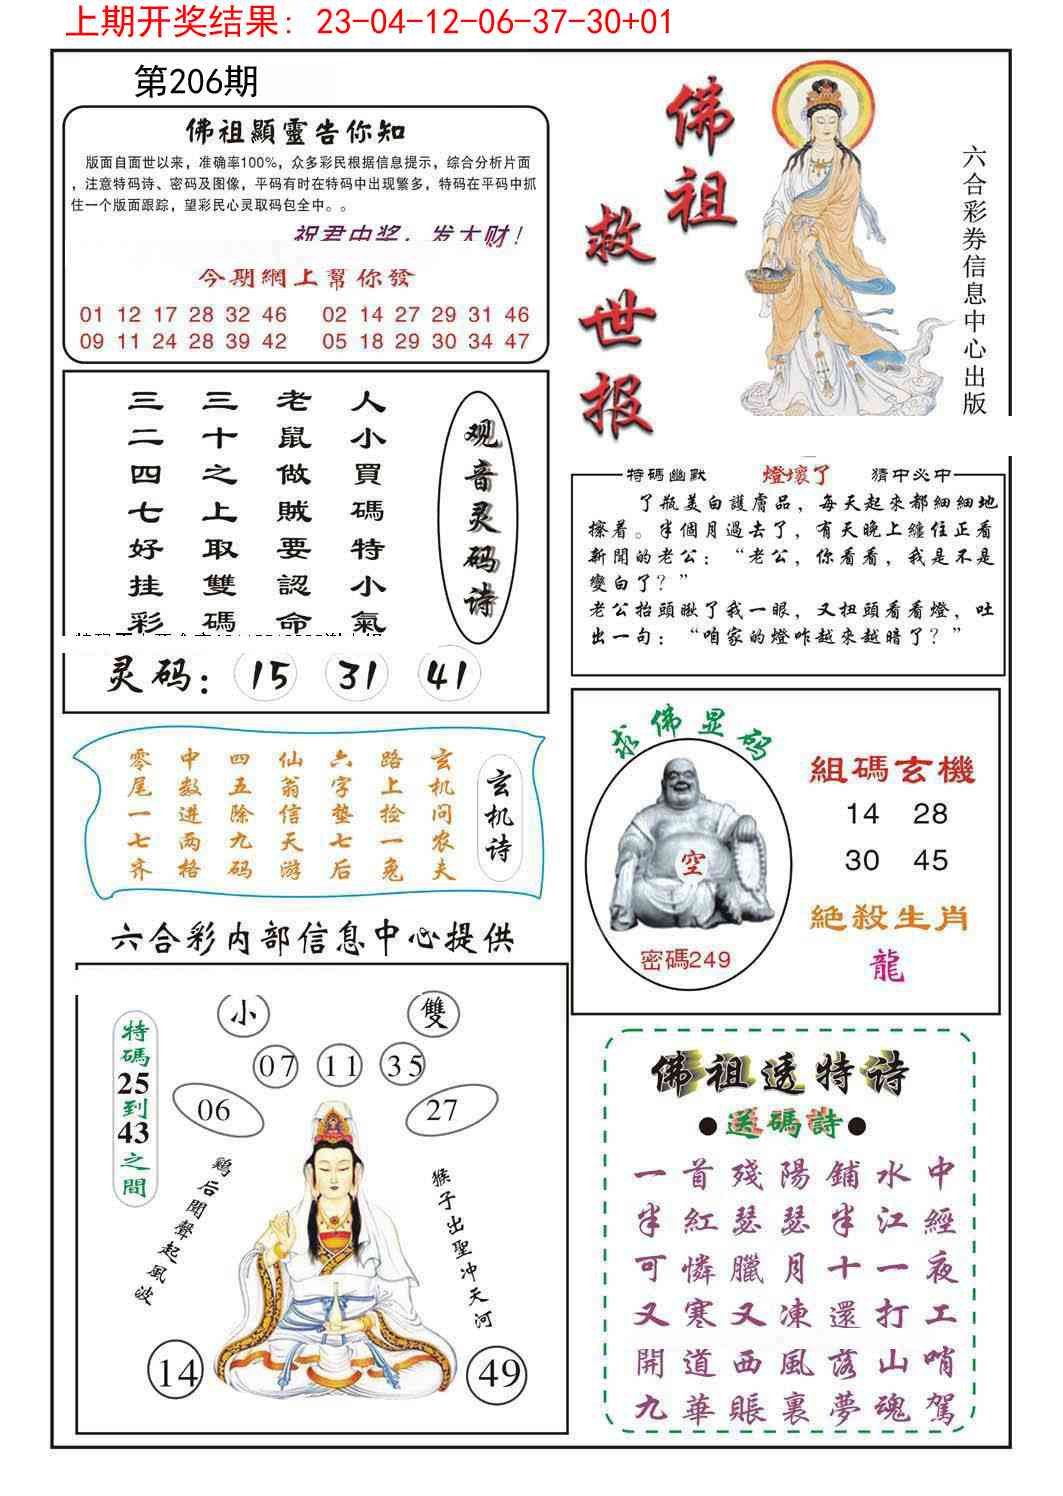 上期开奖结果: 23-04-12-06-37-30+01
第206期
佛祖顯靈告你知
版面自面世以来，准确率100%，众多彩民根据信息提示，综合分析片面
，注意特码诗、密码及图像，平码有时在特码中出现繁多，特码在平码中抓
住一个版面跟踪，望彩民心灵取码包全中。。
祝君中奖，发大财！
今期網上幫你發
01 12 17 28 32 46 02 14 27 29 31 46
09 11 24 28 39 42 05 18 29 30 34 47
佛祖
救世报
六合彩券信息中心出版
观音灵码诗
人小買碼特小氣
老鼠做賊要認命
三十之上取雙碼
三二四七好挂彩
灵码：15 31 41
特碼幽默
燈壞了
猜中必中
了瓶美白護膚品，每天起來都細細地
擦着。半個月過去了，有天晚上纏住正看
新聞的老公：“老公，你看看，我是不是
變白了？”
老公抬頭瞅了我一眼，又扭頭看看燈，吐
出一句：“咱家的燈咋越來越暗了？”
玄机诗
玄机问农夫
路上捡一兔
六字垫七后
仙翁信天游
四五除九码
中数进两格
零尾一七齐
求佛显码
空
密碼249
組碼玄機
14 28
30 45
絕殺生肖
龍
六合彩内部信息中心提供
小
雙
07 11 35
06
27
特碼25到43之間
鷄后聞聲起風波
猴子出聖冲天河
14
49
佛祖透特诗
●送碼詩●
一首殘陽鋪水中
半紅瑟瑟半江經
可憐臘月十一夜
又寒又凍還打工
開道西風落山哨
九華賬裏夢魂駕